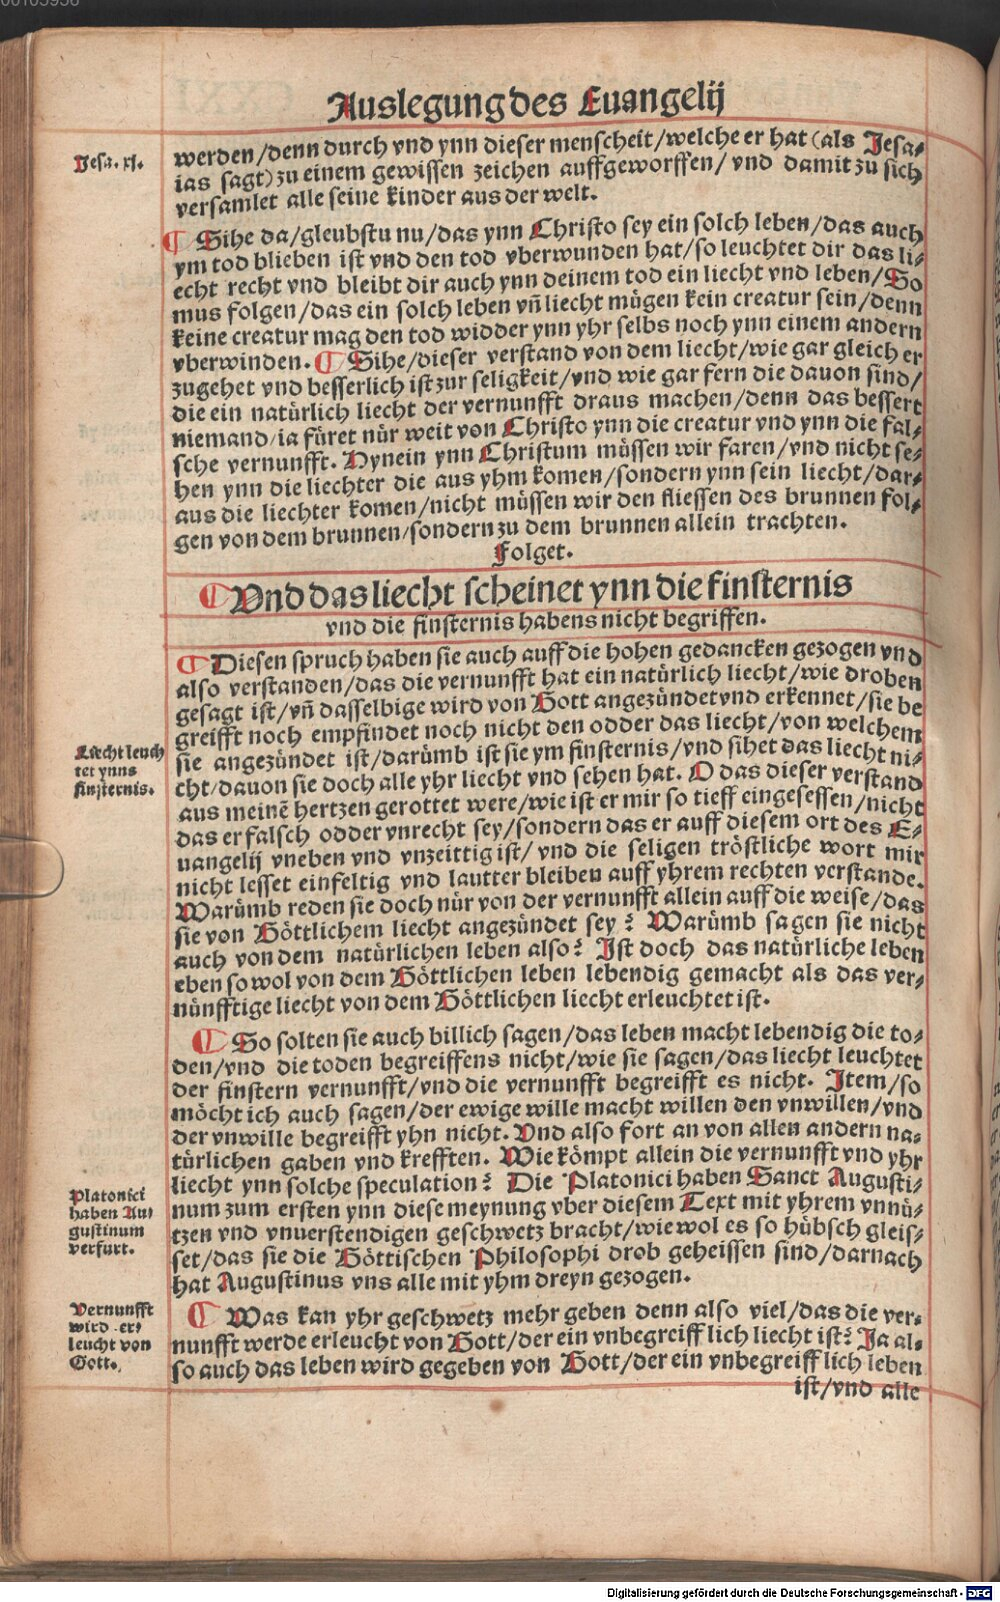 Auslegung des Euangelij
Jesa. xj.
werden/denn durch vnd ynn dieser menscheit/welche er hat (als Jesa⸗
ias sagt) zu einem gewissen zeichen auffgeworffen/ vnd damit zu sich
versamlet alle seine kinder aus der welt.
¶ Sihe da/gleubstu nu/das ynn Christo sey ein solch leben/das auch
ym tod blieben ist vnd den tod vberwunden hat/so leuchtet dir das li⸗
echt recht vnd bleibt dir auch ynn deinem tod ein liecht vnd leben/So
mus folgen/das ein solch leben vñ liecht mügen kein creatur sein/denn
keine creatur mag den tod widder ynn yhr selbs noch ynn einem andern
vberwinden. ¶ Sihe/dieser verstand von dem liecht/wie gar gleich er
zugehet vnd besserlich ist zur seligkeit/vnd wie gar fern die dauon sind/
die ein natürlich liecht der vernunfft draus machen/denn das bessert
niemand/ia füret nür weit von Christo ynn die creatur vnd ynn die fal⸗
sche vernunfft. Hynein ynn Christum müssen wir faren/vnd nicht se⸗
hen ynn die liechter die aus yhm komen/sondern ynn sein liecht/dar⸗
aus die liechter komen/nicht müssen wir den fliessen des brunnen fol⸗
gen von dem brunnen/sondern zu dem brunnen allein trachten.
Folget.
¶ Vnd das liecht scheinet ynn die finsternis
vnd die finsternis habens nicht begriffen.
¶ Diesen spruch haben sie auch auff die hohen gedancken gezogen vnd
also verstanden/das die vernunfft hat ein natürlich liecht/wie droben
gesagt ist/vñ dasselbige wird von Gott angezündet vnd erkennet/sie be
greifft noch empfindet noch nicht den odder das liecht/von welchem
Liecht leuch
tet ynns
finsternis.
sie angezündet ist/darümb ist sie ym finsternis/vnd sihet das liecht ni⸗
cht/dauon sie doch alle yhr liecht vnd sehen hat. O das dieser verstand
aus meinē hertzen gerottet were/wie ist er mir so tieff eingesessen/nicht
das er falsch odder vnrecht sey/sondern das er auff diesem ort des E⸗
uangelij vneben vnd vnzeittig ist/ vnd die seligen tröstliche wort mir
nicht lesset einfeltig vnd lautter bleiben auff yhrem rechten verstande.
Warümb reden sie doch nür von der vernunfft allein auff die weise/das
sie von Göttlichem liecht angezündet sey? Warümb sagen sie nicht
auch von dem natürlichen leben also? Ist doch das natürliche leben
eben so wol von dem Göttlichen leben lebendig gemacht als das ver⸗
nünfftige liecht von dem Göttlichen liecht erleuchtet ist.
¶ So solten sie auch billich sagen/das leben macht lebendig die to⸗
den/vnd die toden begreiffens nicht/wie sie sagen/das liecht leuchtet
der finstern vernunfft/vnd die vernunfft begreifft es nicht. Item/so
möcht ich auch sagen/der ewige wille macht willen den vnwillen/vnd
der vnwille begreifft yhn nicht. Vnd also fort an von allen andern na⸗
türlichen gaben vnd krefften. Wie kömpt allein die vernunfft vnd yhr
liecht ynn solche speculation? Die Platonici haben Sanct Augusti⸗
Platonici
haben Au⸗
gustinum
verfurt.
num zum ersten ynn diese meynung vber diesem Text mit yhrem vnnü⸗
tzen vnd vnuerstendigen geschwetz bracht/wie wol es so hübsch gleis⸗
set/das sie die Göttischen Philosophi drob geheissen sind/darnach
hat Augustinus vns alle mit yhm dreyn gezogen.
Vernunfft
wird er⸗
leucht von
Gott.
¶ Was kan yhr geschwetz mehr geben denn also viel/das die ver⸗
nunfft werde erleucht von Gott/der ein vnbegreifflich liecht ist? Ja al⸗
so auch das leben wird gegeben von Gott/der ein vnbegreifflich leben
ist/vnd alle
Digitalisierung gefördert durch die Deutsche Forschungsgemeinschaft - DFG